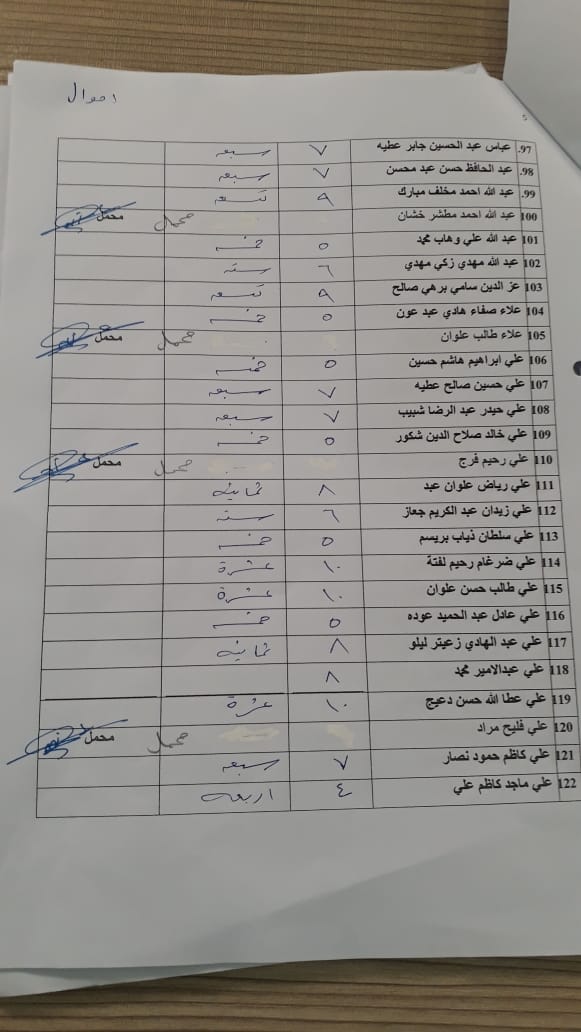 احوال
5
97. عباس عبد الحسين جابر عطيه ٧ سبعه
98. عبد الحافظ حسن عبد محسن ٧ سبعه
99. عبد الله احمد مخلف مبارك ٩ تسعه
100 عبد الله احمد مطشر خشان محمل محمل
101 عبد الله علي وهاب محمد ٥ خمسه
102 عبد الله مهدي زكي مهدي ٦ سته
103 عز الدين سامي برهي صالح ٩ تسعه
104 علاء صفاء هادي عبد عون ٥ خمسه
105 علاء طالب علوان محمل محمل
106 علي ابراهيم هاشم حسين ٥ خمسه
107 علي حسين صالح عطيه ٧ سبعه
108 علي حيدر عبد الرضا شبيب ٧ سبعه
109 علي خالد صلاح الدين شكور ٥ خمسه
110 علي رحيم فرج محمل محمل
111 علي رياض علوان عبد ٨ ثمانيه
112 علي زيدان عبد الكريم جعاز ٦ سته
113 علي سلطان ذياب بريسم ٥ خمسه
114 علي ضرغام رحيم لفتة ١٠ عشرة
115 علي طالب حسن علوان ١٠ عشرة
116 علي عادل عبد الحميد عوده ٥ خمسه
117 علي عبد الهادي زعيتر ليلو ٨ ثمانيه
118 علي عبدالامير محمد ٨
119 علي عطا الله حسن دعيج ١٠ عشرة
120 علي فليح مراد محمل محمل
121 علي كاظم حمود نصار ٧ سبعه
122 علي ماجد كاظم علي ٤ اربعه